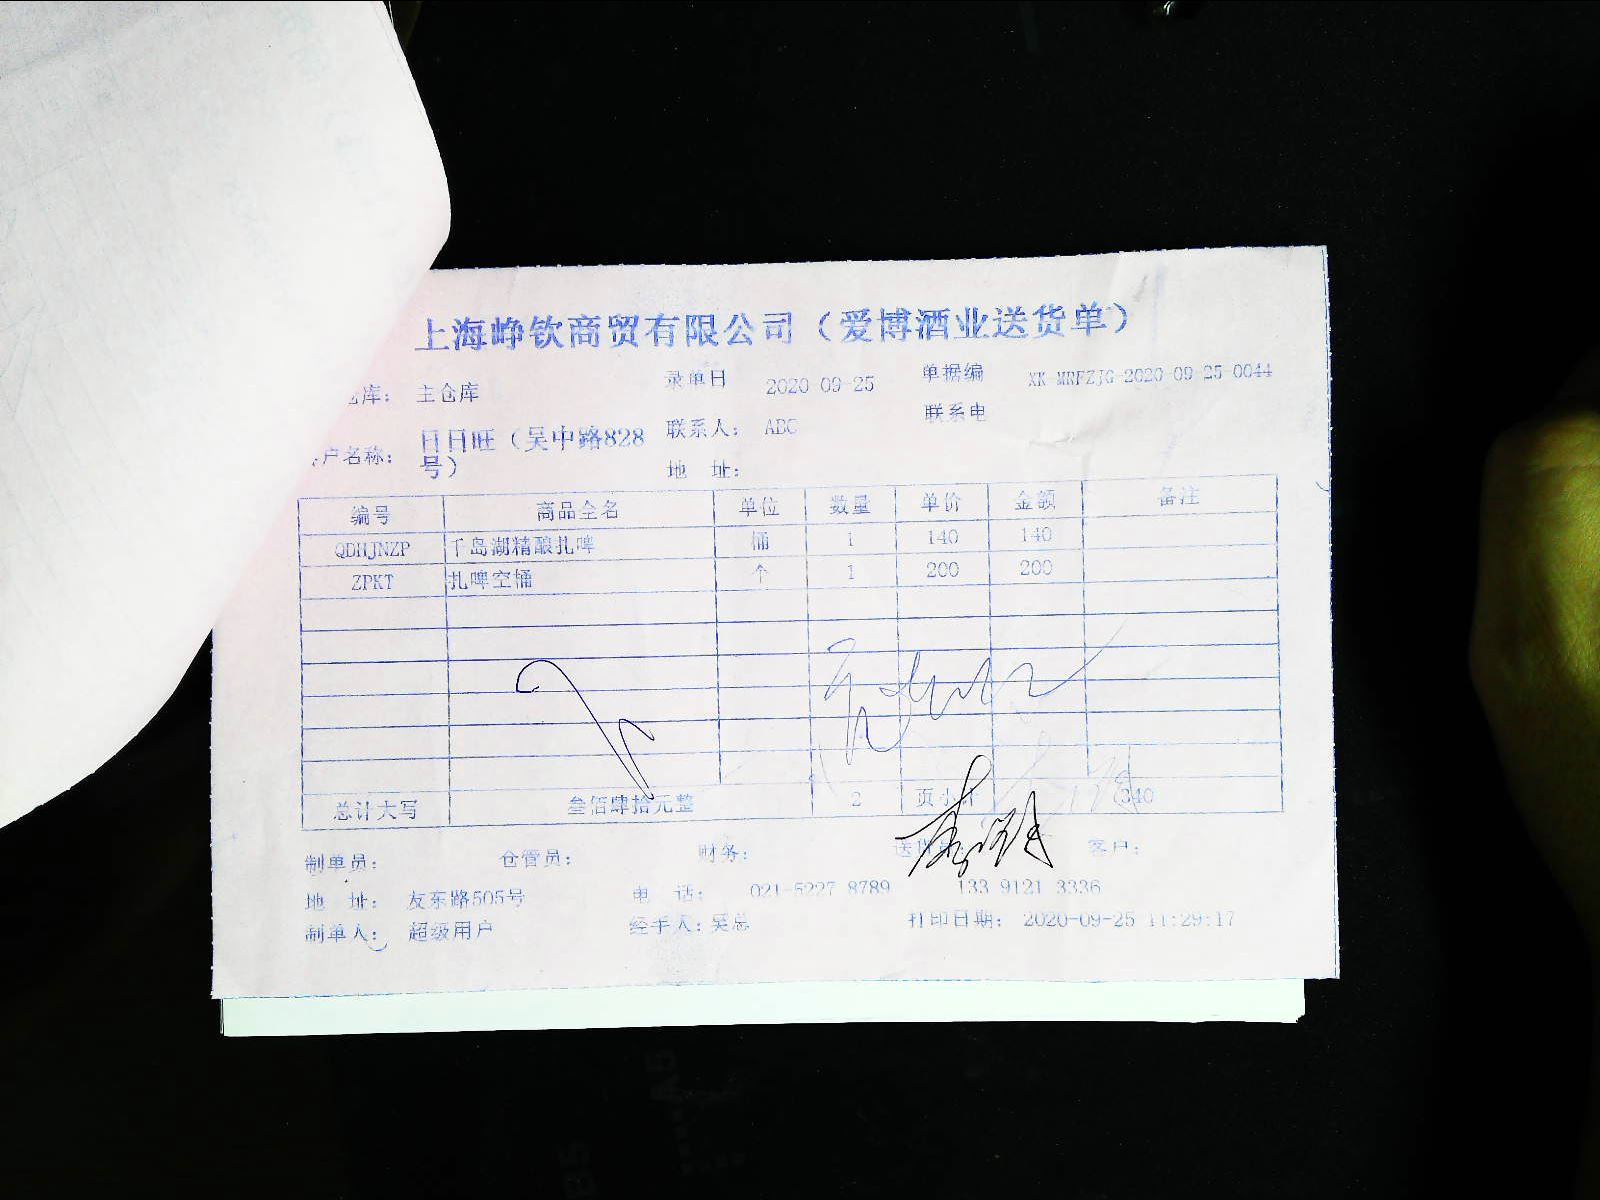 上海峥钦商贸有限公司（爱博酒业送货单）
仓库： 主仓库 录单日 2020-09-25 单据编 XK-MRFZJG-2020-09-25-0044
联系电
户名称： 日日旺（吴中路828号） 联系人： ABC
地 址：
编号 商品全名 单位 数量 单价 金额 备注
QDHJNZP 千岛湖精酿扎啤 桶 1 140 140
ZPKT 扎啤空桶 个 1 200 200
总计大写 叁佰肆拾元整 2 页小计 340
制单员： 仓管员： 财务： 送货员： 客户：
地 址： 友东路505号 电 话： 021-5227 8789 133 9121 3336
制单人： 超级用户 经手人：吴总 打印日期： 2020-09-25 11:29:17